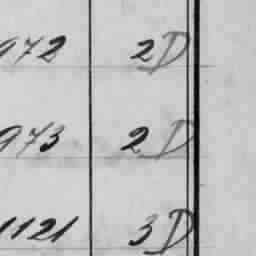 972 2D
973 2D
1121 3D